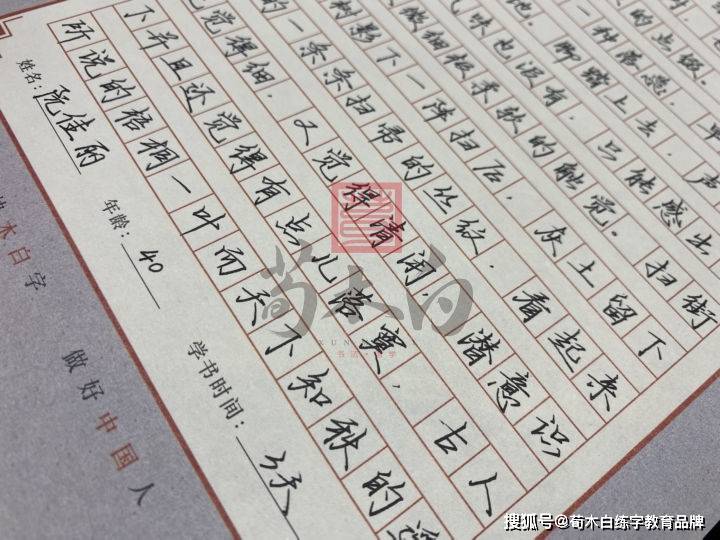 的点缀。
一种落蕊，早
地。脚踏上去，声
气味也没有，只能感出
微细极柔软的触觉。扫街
树影下一阵扫后，灰土留下
的一条条扫帚的丝纹，看起来
觉得细，又觉得清闲，潜意识
下并且还觉得有点儿落寞，古人
所说的梧桐一叶而天不知秋的遥
姓名：阮佳丽 年龄：40 学书时间：3天
木白字 做好中国人
荀木白
搜狐号@荀木白练字教育品牌